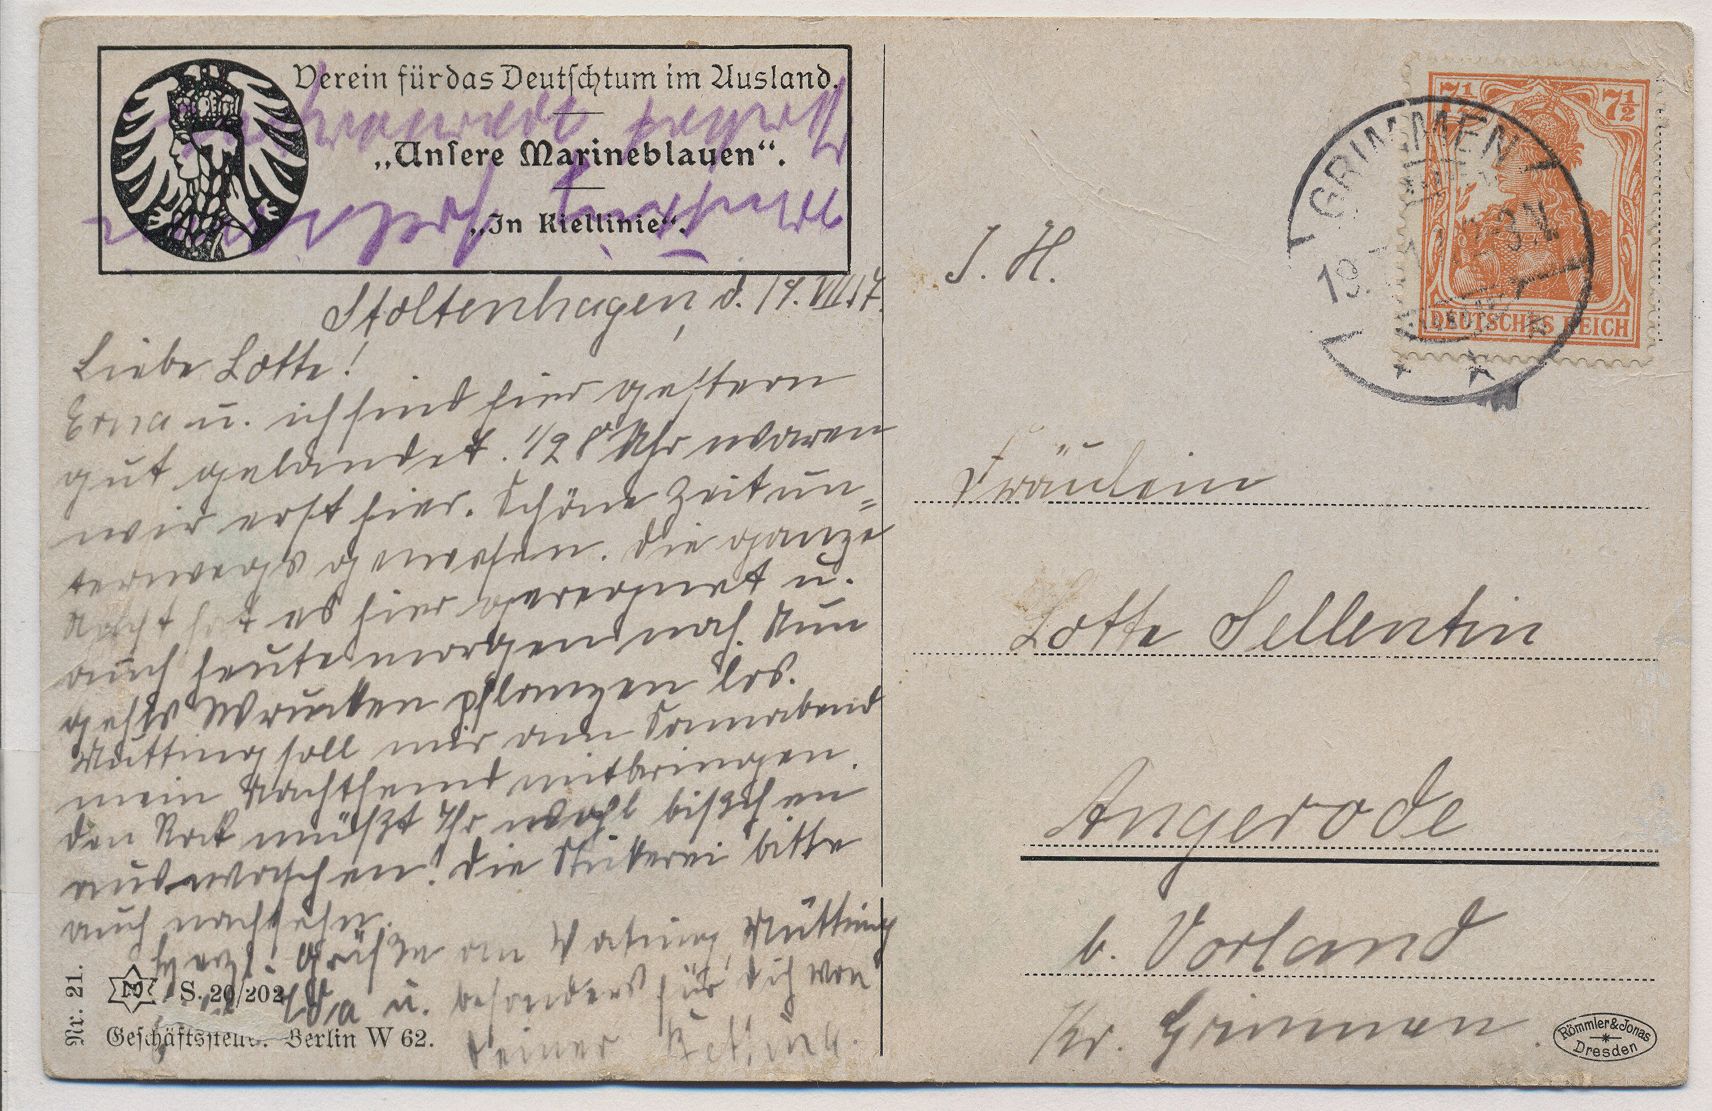 Verein für das Deutschtum im Ausland.
„Unsere Marineblauen“.
„In Kiellinie“.
Stoltenhagen, d. 19. VII. 17.
Liebe Lotte!
Erna u. ich sind hier gestern
gut gelandet. 1/2 8 Uhr waren
wir erst hier. Schöne Zeit un=
terwegs gewesen. Die ganze
Nacht hat es hier geregnet u.
auch heute morgen noch. Nun
gehts Wrucken pflanzen los.
Mutting soll mir am Sonnabend
mein Nachthemd mitbringen.
Den Rock müßt Ihr wohl bißchen
auswaschen! Die Stickerei bitte
auch nachsehn.
Herzl. Grüße an Vating, Mutting
u. besonders für Dich von
Deiner
Nr. 21.
S. 20/202
Geschäftsstelle: Berlin W 62.
J. H.
7½ 7½
DEUTSCHES REICH
GRIMMEN
19. 3 N
Fräulein
Lotte Sellentin
Angerode
b. Vorland
Kr. Grimmen.
Römmler & Jonas
Dresden